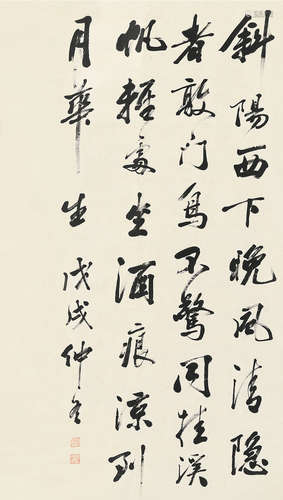 斜陽西下晚風清隐
者敲门鳥不驚同挂溪
帆輕處坐酒痕涼到
月華生 戊戌仲冬